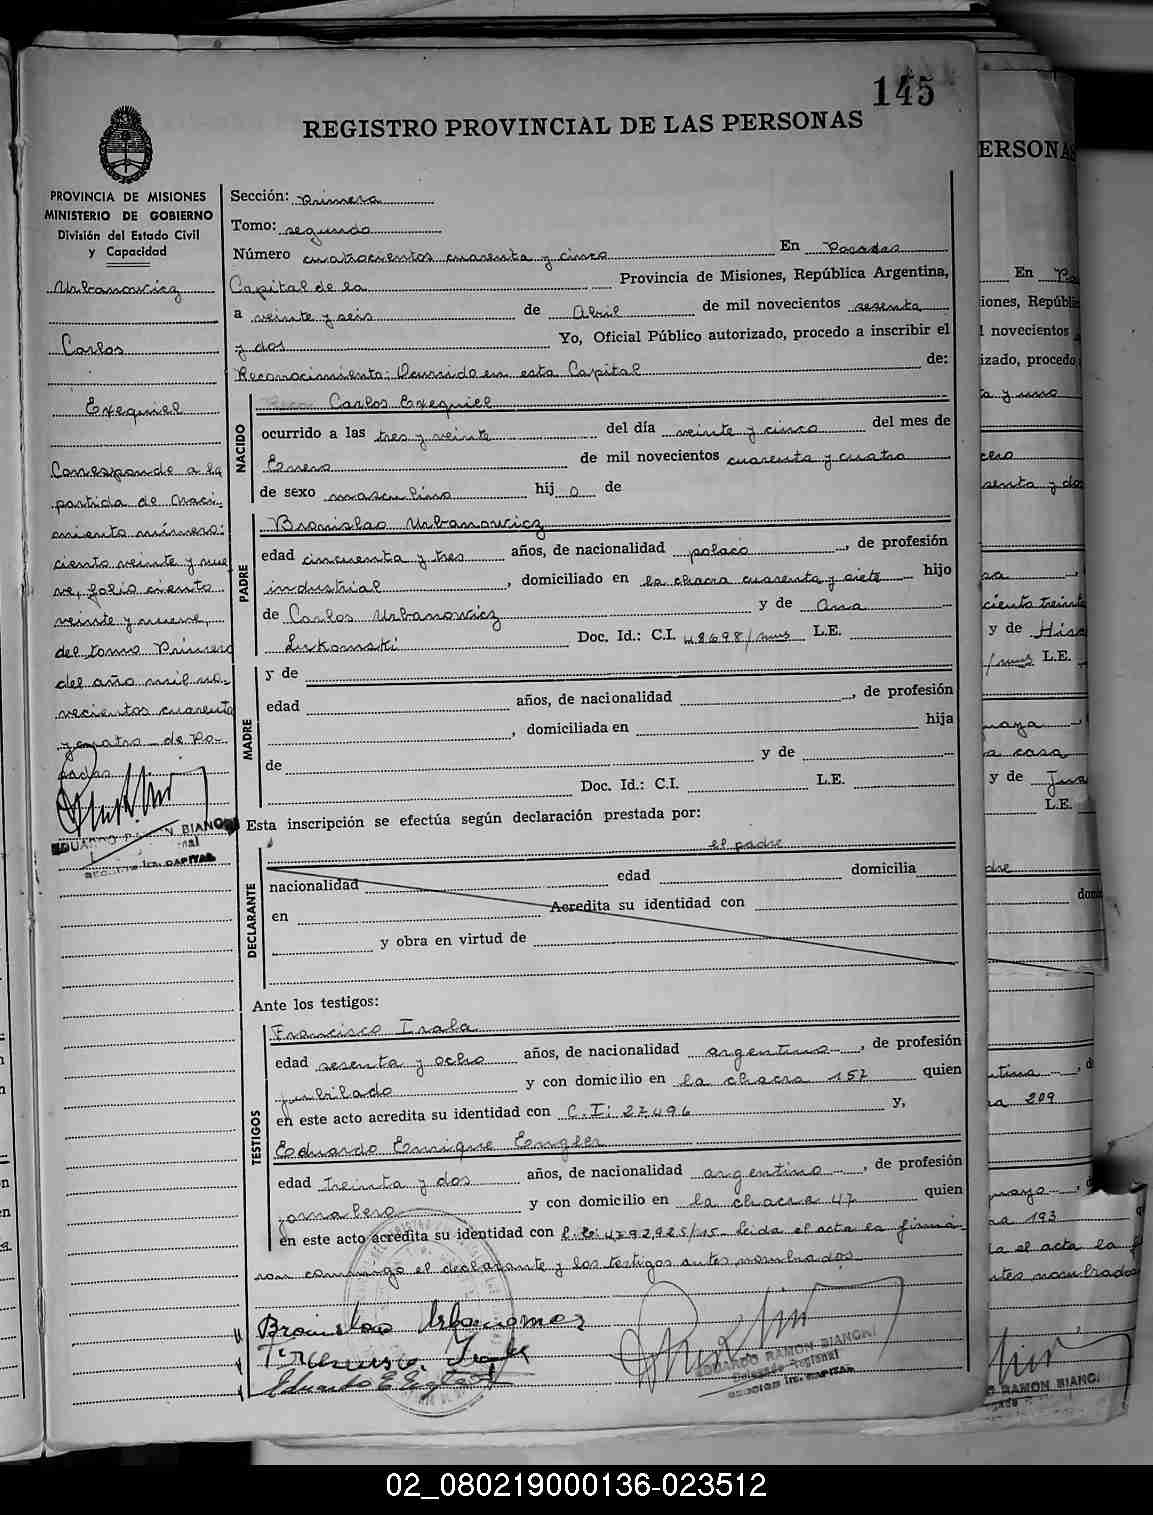 145
REGISTRO PROVINCIAL DE LAS PERSONAS
PROVINCIA DE MISIONES
MINISTERIO DE GOBIERNO
División del Estado Civil
y Capacidad
Urbanowicz
Carlos
Exequiel
Corresponde a la
partida de Naci-
miento número:
ciento veinte y nue
ve, folio ciento
veinte y nueve,
del tomo Primero
del año mil no-
vecientos cuarenta
y cuatro de Po-
sadas
EDUARDO RAMON BIANCHI
Sección: Primera
Tomo: segundo
Número cuatrocientos cuarenta y cinco En Posadas
Capital de la Provincia de Misiones, República Argentina,
a veinte y seis de Abril de mil novecientos sesenta
y dos Yo, Oficial Público autorizado, procedo a inscribir el
Reconocimiento: Ocurrido en esta Capital de:
NACIDO
Carlos Exequiel
ocurrido a las tres y veinte del día veinte y cinco del mes de
Enero de mil novecientos cuarenta y cuatro
de sexo masculino hijo de
PADRE
Bronislao Urbanowicz
edad cincuenta y tres años, de nacionalidad polaco, de profesión
industrial, domiciliado en la chacra cuarenta y siete hijo
de Carlos Urbanowicz y de Ana
Lukomski Doc. Id.: C.I. 48698/mus L.E.
MADRE
y de
edad años, de nacionalidad , de profesión
, domiciliada en hija
de y de
Doc. Id.: C.I. L.E.
Esta inscripción se efectúa según declaración prestada por:
DECLARANTE
el padre
nacionalidad edad domicilia
en Acredita su identidad con
y obra en virtud de
Ante los testigos:
TESTIGOS
Francisco Irala
edad sesenta y ocho años, de nacionalidad argentino, de profesión
jubilado y con domicilio en la chacra 157 quien
en este acto acredita su identidad con C.I: 27496 y,
Eduardo Enrique Engler
edad treinta y dos años, de nacionalidad argentino, de profesión
jornalero y con domicilio en la chacra 47 quien
en este acto acredita su identidad con leida el acta la firma
ron conmigo el declarante y los testigos antes nombrados
EDUARDO RAMON BIANCHI
Delegado Regional
02_080219000136-023512